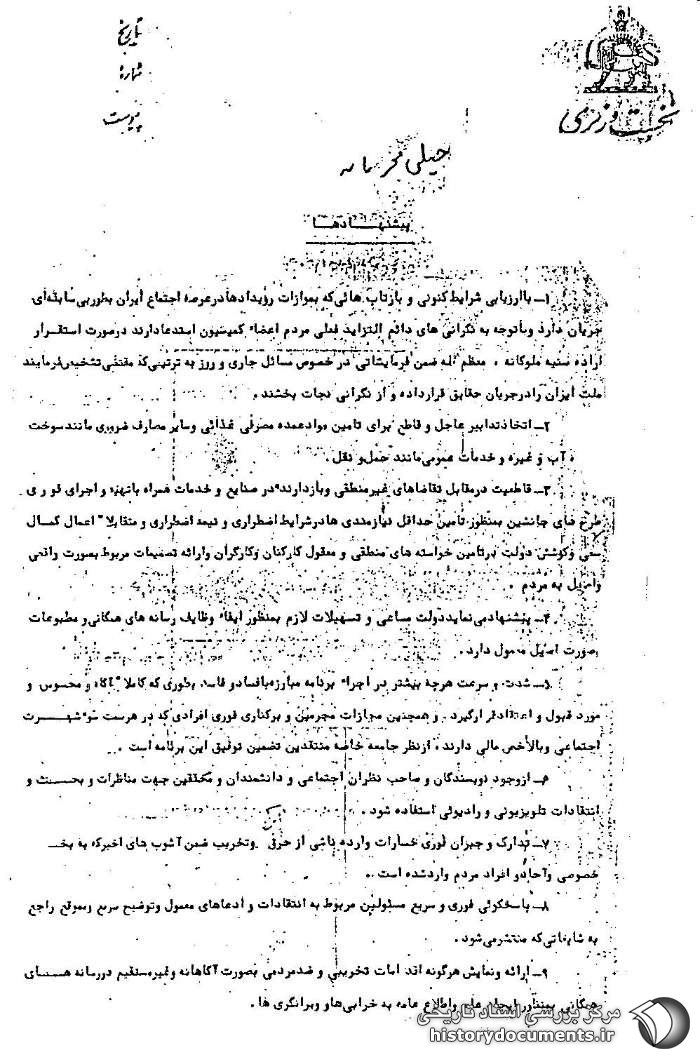 تاریخ
شماره
پیوست
نخست وزیری
خیلی محرمانه
پیشنهادها
۱ـ باارزیابی شرایط کنونی و بازتاب هائی‌که بموازات رویدادهادرعرصه اجتماع ایران بطوربی سابقه‌ای
جریان دارد وباتوجه به نگرانی های دائم التزاید فعلی مردم اعضاء کمیسیون استدعادارند درصورت استقرار
اراده سنیه ملوکانه ، معظم له ضمن فرمایشاتی در خصوص مسائل جاری و روز به ترتیبی‌که مقتضی تشخیص‌فرمایند
ملت ایران رادرجریان حقایق قرارداده و از نگرانی نجات بخشند .
۲ـ اتخاذتدابیر عاجل و قاطع برای تامین موادعمده مصرفی غذائی وسایر مصارف ضروری مانندسوخت
، آب و غیره و خدمات عمومی‌مانند حمل‌و نقل .
۳ـ قاطعیت درمقابل تقاضاهای غیرمنطقی وبازدارنده‌در صنایع و خدمات همراه باتهیه و اجرای فوری
طرح های جانشین بمنظور تامین حداقل نیازمندی هادرشرایط اضطراری و نیمه اضطراری و متقابلا" اعمال کمال
سعی وکوشش دولت برتامین خواسته های منطقی و معقول کارکنان وکارگران وارائه تصمیمات مربوط بصورت واقعی
واصیل به مردم .
۴ـ پیشنهادمی‌نماید‌دولت مساعی و تسهیلات لازم بمنظور ایفاء وظایف رسانه های همگانی‌و مطبوعات
بصورت اصیل معمول دارد .
۵ـ شدت و سرعت هرچه بیشتر در اجراء برنامه مبارزه‌بافسادو فاسد بطوری که کاملا" آگاه و محسوس و
مورد قبول و اعتقادقرارگیرد و همچنین مجازات مجرمین و برکناری فوری افرادی که در هرست سوءشهرت
اجتماعی وبالاخص مالی دارند ، ازنظر جامعه خاصه منتقدین تضمین توفیق این برنامه است .
۶ـ ازوجود نویسندگان و صاحب نظران اجتماعی و دانشمندان و محققین جهت مناظرات و بحث و
انتقادات تلویزیونی و رادیوئی استفاده شود .
۷ـ تدارک و جبران فوری خسارات وارده ناشی از حرق وتخریب ضمن آشوب های اخیرکه به بخش
خصوصی وآحادو افراد مردم واردشده است .
۸ـ پاسخگوئی فوری و سریع مسئولین مربوط به انتقادات و ادعاهای معمول وتوضیح سریع وبموقع راجع
به شایعاتی‌که منتشرمی‌شود .
۹ـ ارائه ونمایش هرگونه اقدامات تخریبی و ضدمردمی بصورت آگاهانه وغیرمستقیم دررسانه های
همگانی بمنظور ایجاد علم واطلاع عامه به خرابی‌هاو ویرانگری ها .
مرکز بررسی اسناد تاریخی
historydocuments.ir